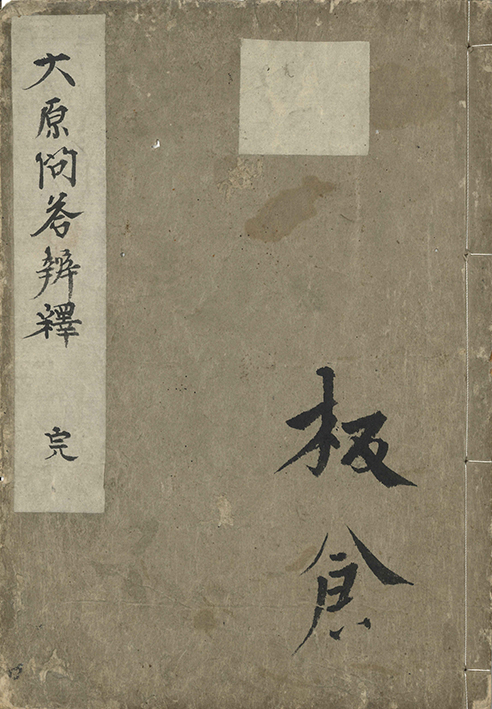 大原問答辨釋 完
板倉